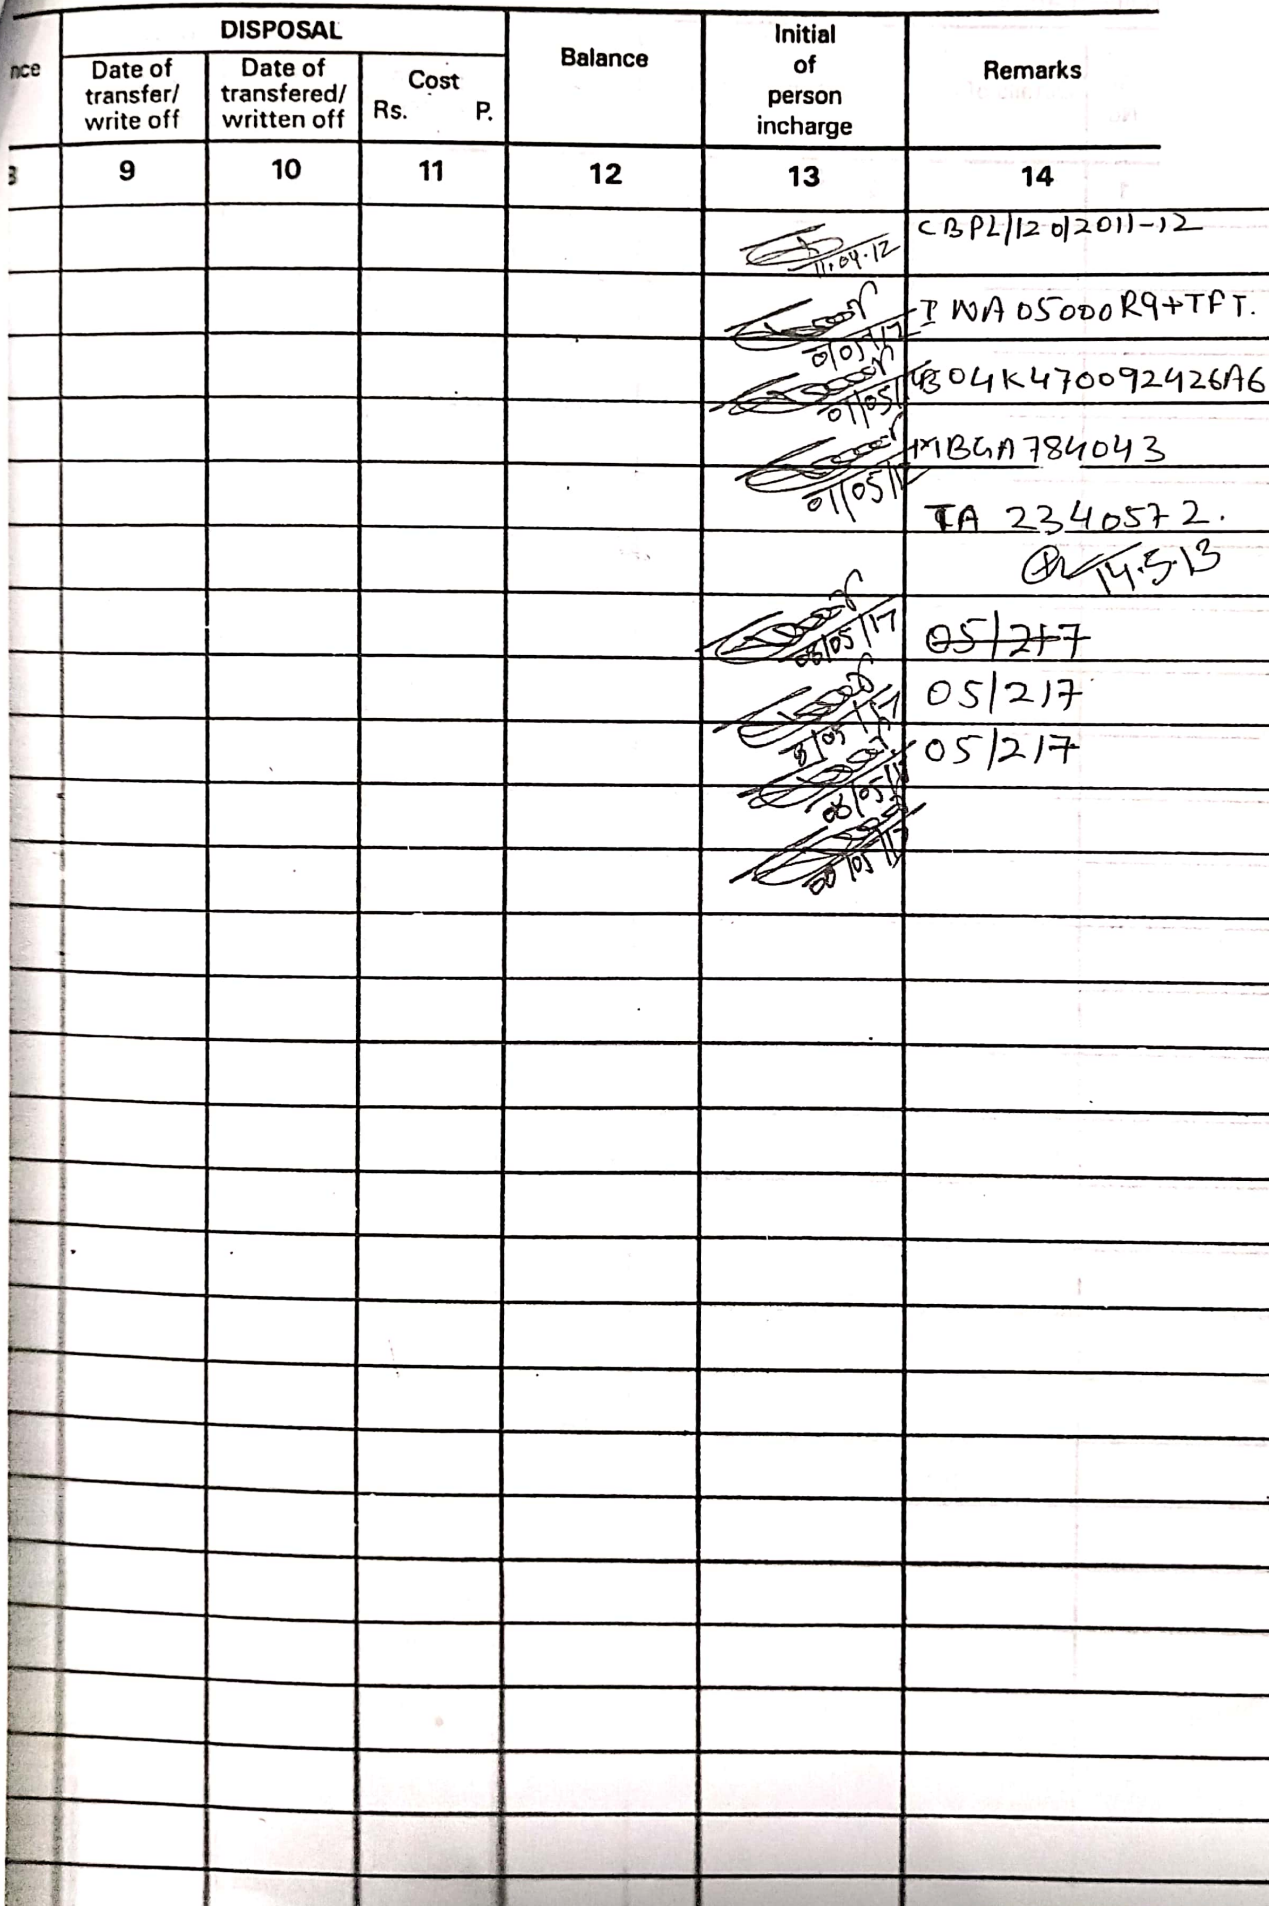 DISPOSAL
nce
Date of transfer/ write off
Date of transfered/ written off
Cost
Rs. P.
Balance
Initial of person incharge
Remarks
9 10 11 12 13 14
11.04.12 CBPL/120/2011-12
INA05000R9+TFT.
01/05/17
B04K470092426A6
01/05/
MBGA784043
01/05/1
TA 2340572.
14.5.13
08/05/17 05/217
05/217
8/05/17
05/217
08/05/1
08/05/17